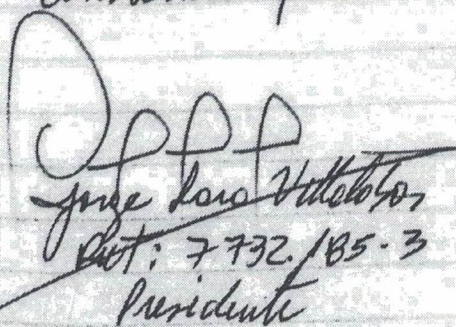 Jorge Lara Villalobos
Rut: 7732.185-3
Presidente